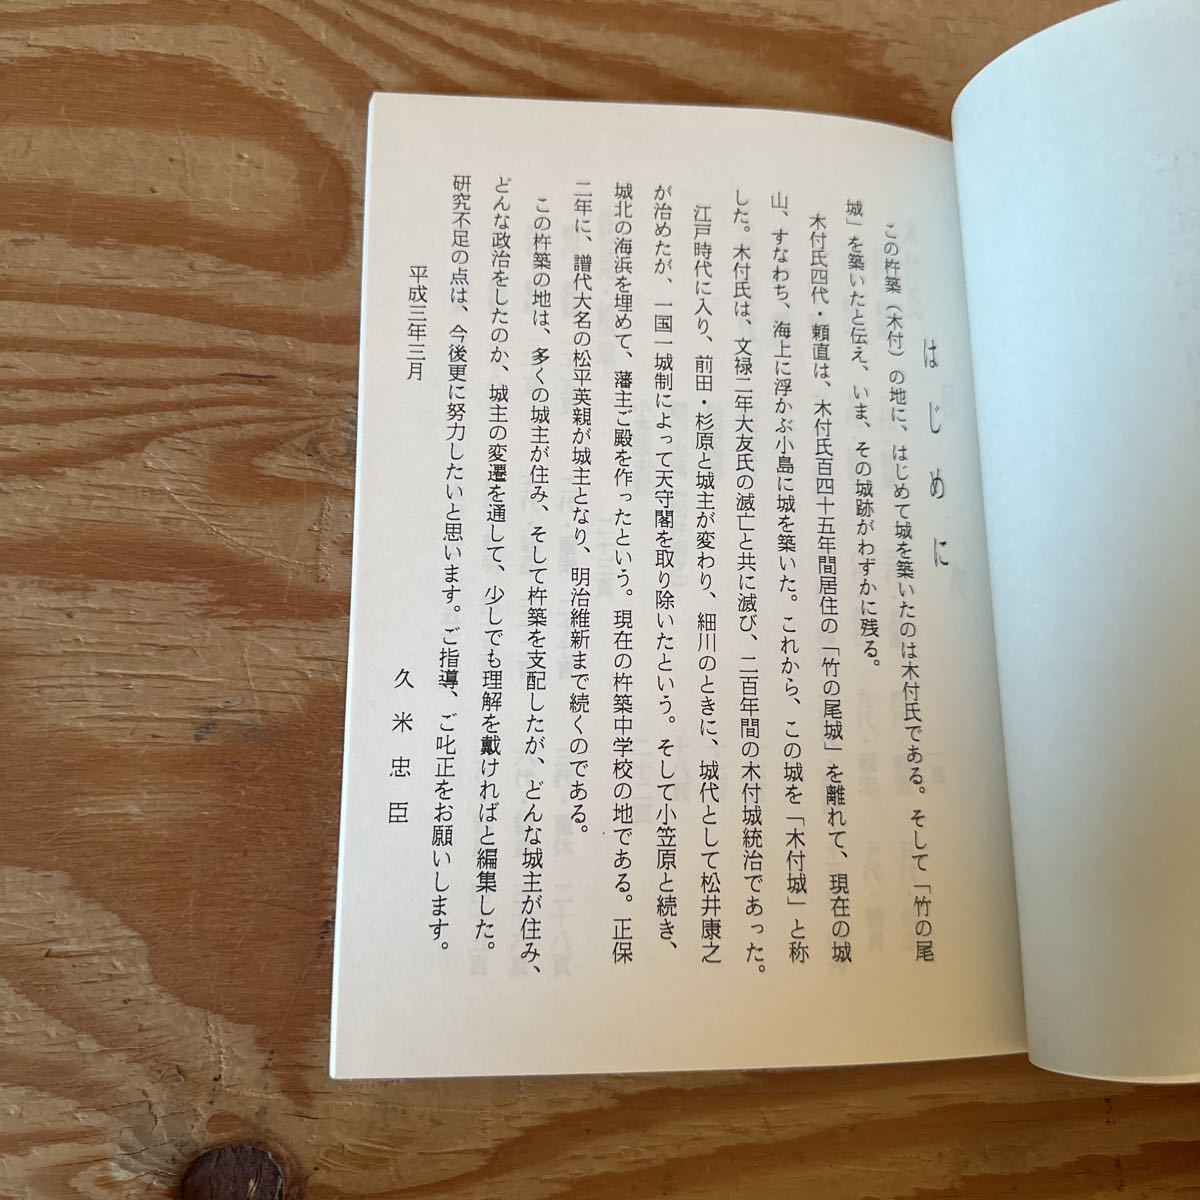 はじめに
この杵築（木付）の地に、はじめて城を築いたのは木付氏である。そして「竹の尾
城」を築いたと伝え、いま、その城跡がわずかに残る。
木付氏四代・頼直は、木付氏百四十五年間居住の「竹の尾城」を離れて、現在の城
山、すなわち、海上に浮かぶ小島に城を築いた。これから、この城を「木付城」と称
した。木付氏は、文禄二年大友氏の滅亡と共に滅び、二百年間の木付城統治であった。
江戸時代に入り、前田・杉原と城主が変わり、細川のときに、城代として松井康之
が治めたが、一国一城制によって天守閣を取り除いたという。そして小笠原と続き、
城北の海浜を埋めて、藩主ご殿を作ったという。現在の杵築中学校の地である。正保
二年に、譜代大名の松平英親が城主となり、明治維新まで続くのである。
この杵築の地は、多くの城主が住み、そして杵築を支配したが、どんな城主が住み、
どんな政治をしたのか、城主の変遷を通して、少しでも理解を戴ければと編集した。
研究不足の点は、今後更に努力したいと思います。ご指導、ご叱正をお願いします。
平成三年三月
久米忠臣